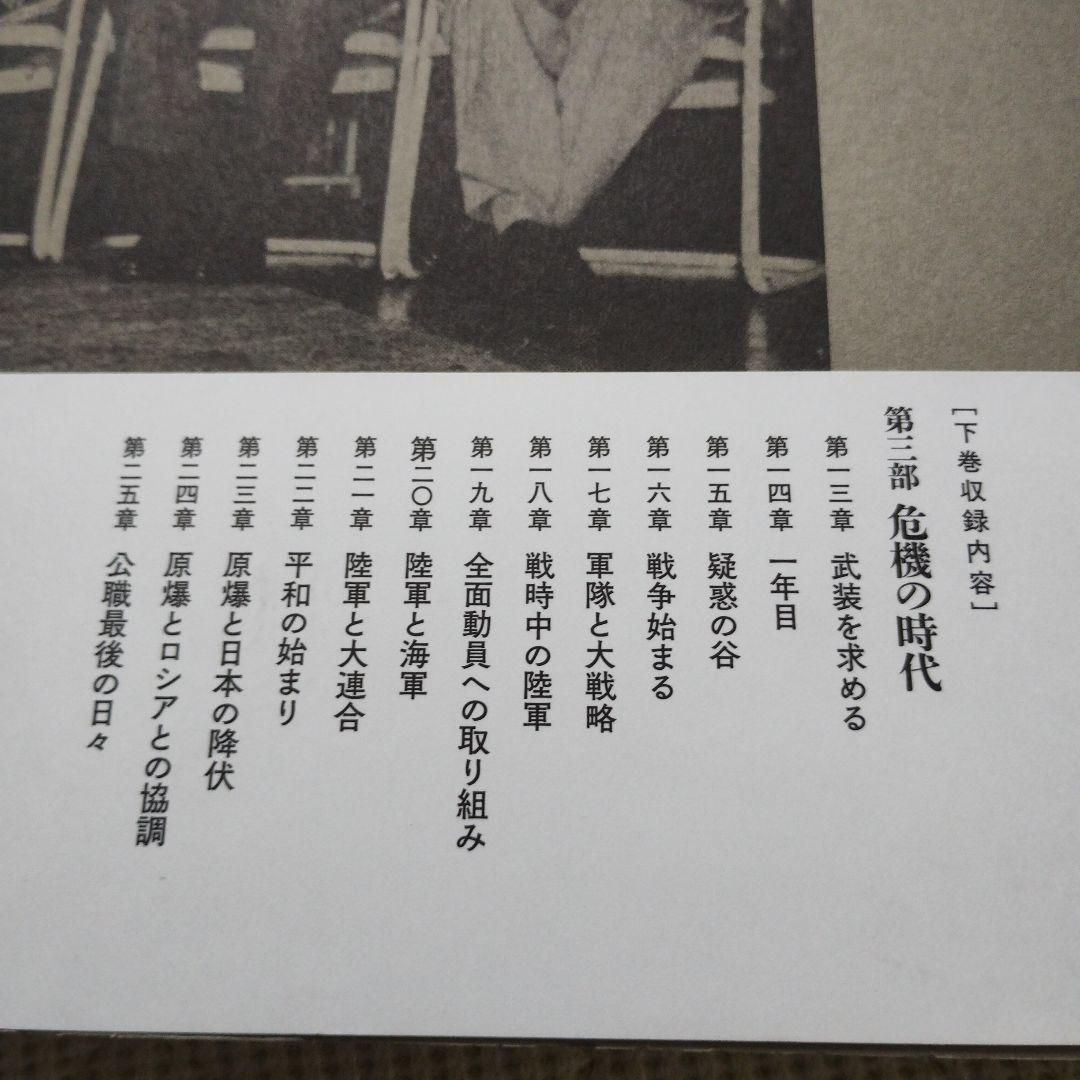 [下巻収録内容]
第三部 危機の時代
第一三章 武装を求める
第一四章 一年目
第一五章 疑惑の谷
第一六章 戦争始まる
第一七章 軍隊と大戦略
第一八章 戦時中の陸軍
第一九章 全面動員への取り組み
第二〇章 陸軍と海軍
第二一章 陸軍と大連合
第二二章 平和の始まり
第二三章 原爆と日本の降伏
第二四章 原爆とロシアとの協調
第二五章 公職最後の日々